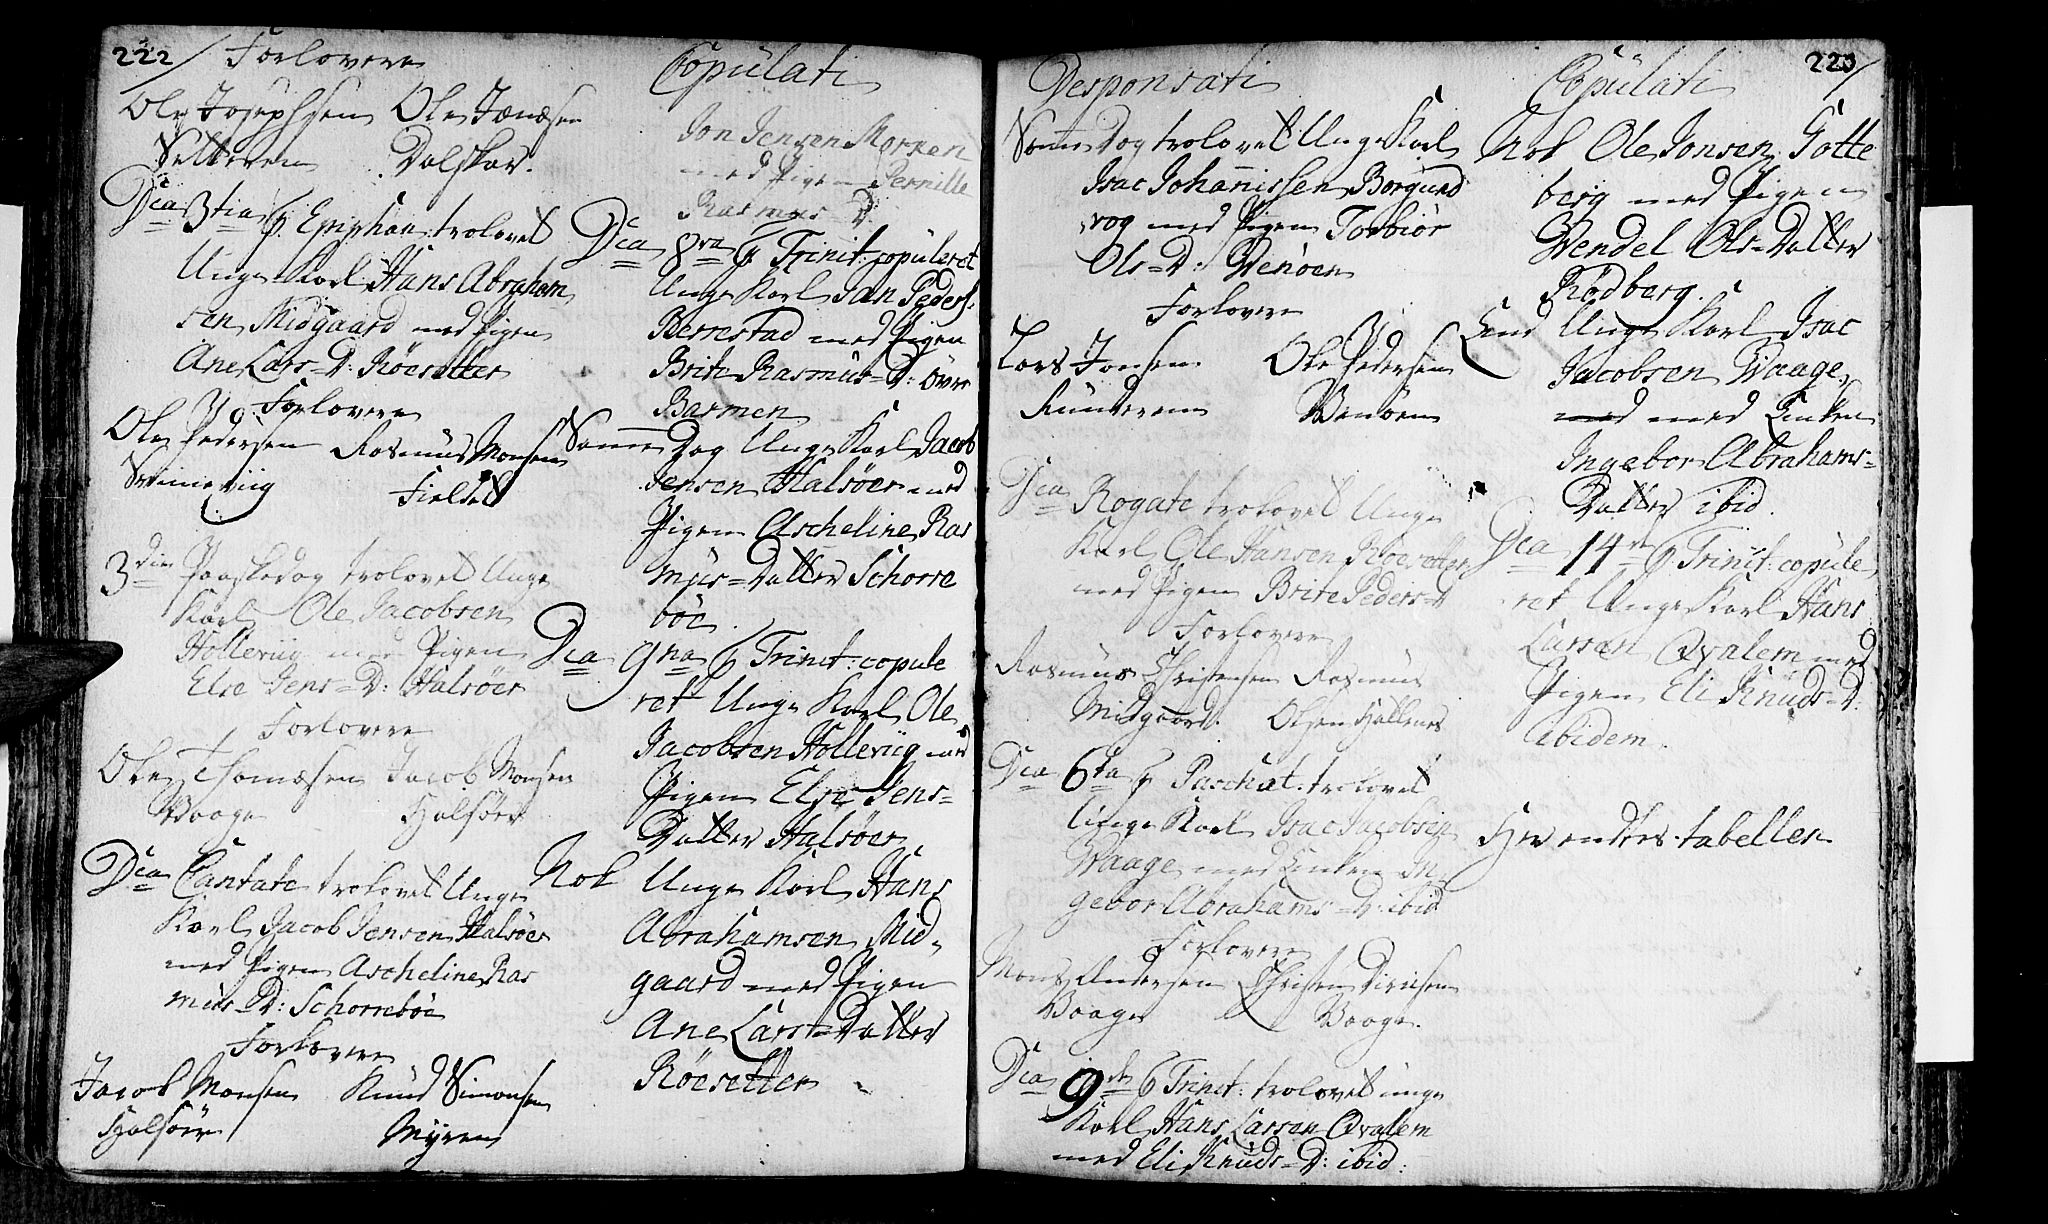 222
Forlovere
Ole Josephsen Ole Jonæsen
Selteren Dalskar.
Dca 3tia p. Epiphan: trolovet
Unge Karl Hans Abraham
sen Midgaard med Pigen
Ane Lars=D: Röesetter
Forlovere
Ole Pedersen Rasmus Monsen
Fielset
3die Paaskedag trolovet Unge
Karl Ole Jacobsen
Holleviig med Pigen
Else Jens=D: Halsöer
Forlovere
Ole Thomæsen Jacob Monsen
Vaage Halsöer
Dca Cantate trolovet Unge
Karl Jacob Jensen Halsöer
med Pigen Ascheline Ras
mus D: Schorreböe
Forlovere
Jacob Monsen Knud Simonsen
Halsöer Myren
Copulati
Jon Jensen Morken
med Pigen Pernille
Rasmus=D.
Dca 8va p Trinit: copuleret
Unge Karl Jan Peders:
Berrestad med Pigen
Brite Rasmus=D: Övre
Barmen
Samme Dag Unge Karl Jacob
Jensen Halsöer med
Pigen Ascheline Ras
mus=Datter Schorre
böe.
Dca 9na p Trinit: copule
ret Unge Karl Ole
Jacobsen Holleviig med
Pigen Else Jens=
Datter Halsöer
Nok Unge Karl Hans
Abrahamsen Mid=
gaard med Pigen
Ane Lars=Datter
Röesetter
223
Desponsati
Samme Dag trolovet Unge Karl
Isac Johannissen Borgund
vog med Pigen Torbiör
Ols=D: Wenöen
Forlovere
Lars Jonsen Ole Pedersen
Wenöen
Dca Rogate trolovet Unge
Karl Ole Hansen Röesetter
med Pigen Brite Peders=D
Forlovere
Rasmus Christensen Rasmus
Midgaard. Olsen Hallenes
Dca 6ta p Paschat: trolovet
Unge Karl Isac Jacobsen
Waage med Enken In=
gebor Abrahams=D: ibid
Forlovere
Mons Andersen Christen Iversen
Vaage Vaage.
Dca 9de p Trinit: trolovet unge
Karl Hans Larsen Qvalem
med Eli Knuds=D: ibid:
Copulati
Nok Ole Jonsen Gotte
berg med Pigen
Wendel Ols=Datter
Rödberg.
End Unge Karl Isac
Jacobsen Waage,
med med Enken
Ingebor Abrahams=
Datter ibid.
Dca 14de p Trinit: copule
ret Unge Karl Hans
Larsen Qvalem med
Pigen Eli Knuds=D:
ibidem.
Her endes tabellen